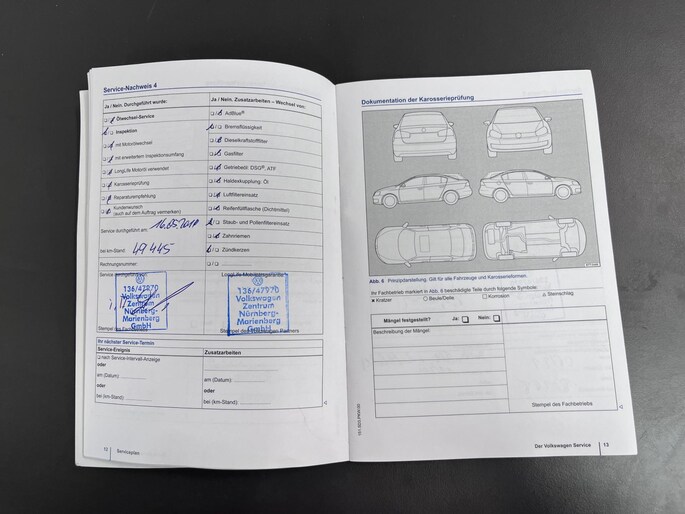 Service-Nachweis 4
Ja / Nein. Durchgeführt wurde:
Ölwechsel-Service
Inspektion
mit Motorölwechsel
mit erweitertem Inspektionsumfang
LongLife Motoröl verwendet
Karosserieprüfung
Reparaturempfehlung
Kundenwunsch
(auch auf dem Auftrag vermerken)
Service durchgeführt am:
bei km-Stand: 49 445
Rechnungsnummer:
136/47970
Volkswagen
Zentrum
Nürnberg-
Marienberg
GmbH
Ja / Nein. Zusatzarbeiten – Wechsel von:
AdBlue®
Bremsflüssigkeit
Dieselkraftstofffilter
Gasfilter
Getriebeöl: DSG®, ATF
Haldexkupplung: Öl
Luftfiltereinsatz
Reifenfüllflasche (Dichtmittel)
Staub- und Pollenfiltereinsatz
Zahnriemen
Zündkerzen
LongLife Mobilitätsgarantie
136/47970
Volkswagen
Zentrum
Nürnberg-
Marienberg
GmbH
Stempel des Volkswagen Partners
Ihr nächster Service-Termin:
Service-Ereignis
nach Service-Intervall-Anzeige
oder
am (Datum):
oder
bei (km-Stand):
Zusatzarbeiten
am (Datum):
oder
bei (km-Stand):
Serviceplan
Dokumentation der Karosserieprüfung
Abb. 6 Prinzipdarstellung. Gilt für alle Fahrzeuge und Karosserieformen.
Ihr Fachbetrieb markiert in Abb. 6 beschädigte Teile durch folgende Symbole:
Kratzer Beule/Delle Korrosion Steinschlag
Mängel festgestellt? Ja: Nein:
Beschreibung der Mängel:
Stempel des Fachbetriebs
Der Volkswagen Service 13